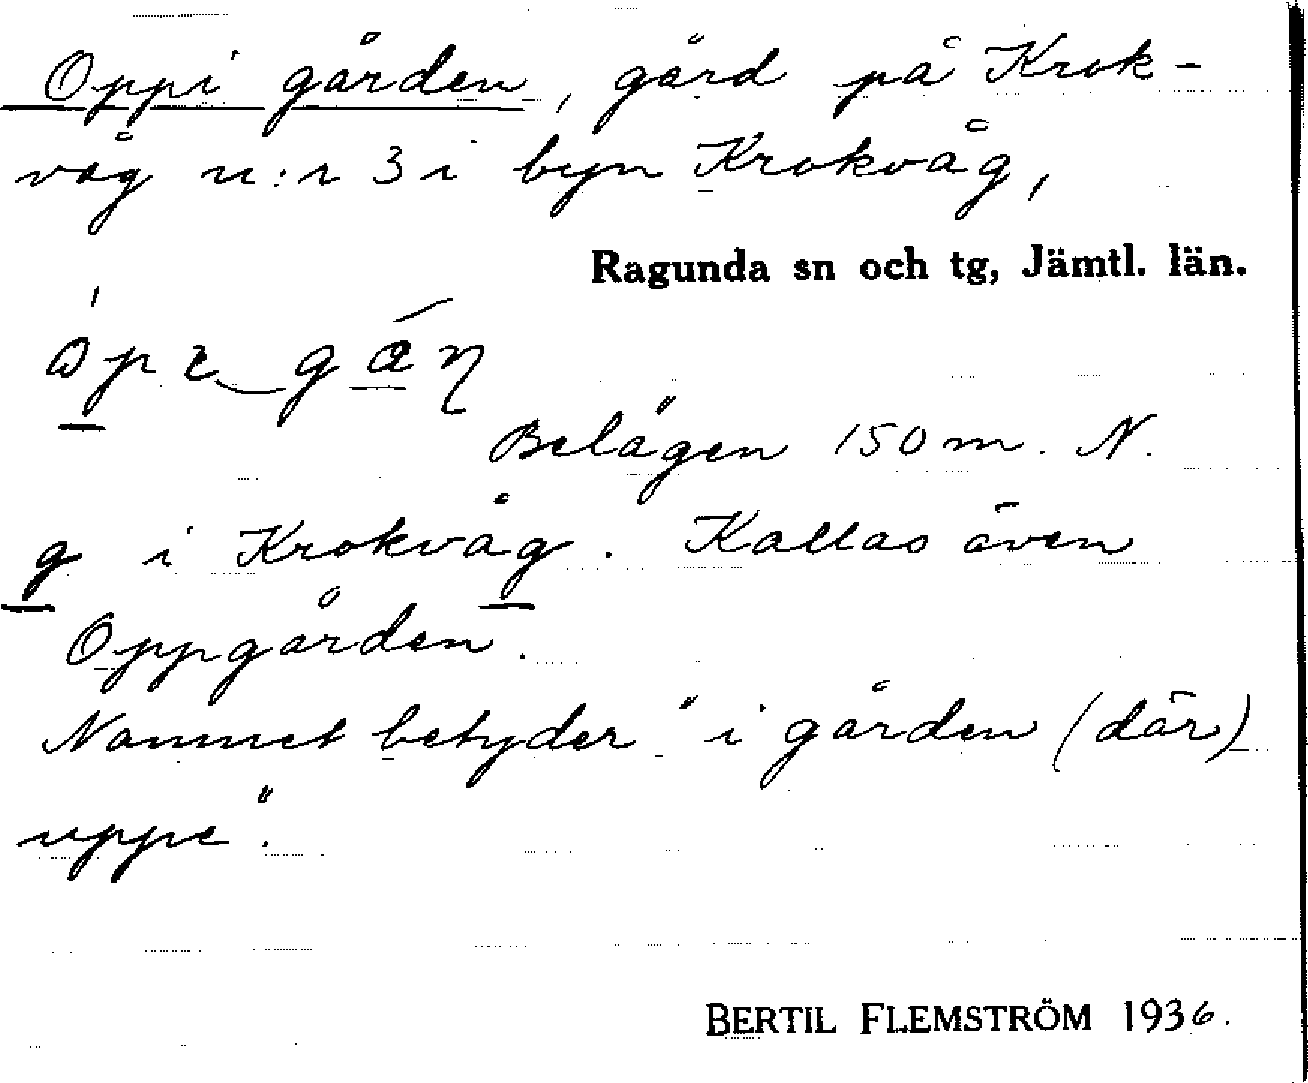 Oppi gården, gård på Krok-
våg n:r 3 i byn Krokvåg,
Ragunda sn och tg, Jämtl. län.
Belägen 150 m. N.
g i Krokvåg. Kallas även
Oppgården.
Namnet betyder "i gården (där)
uppe".
BERTIL FLEMSTRÖM 1936.